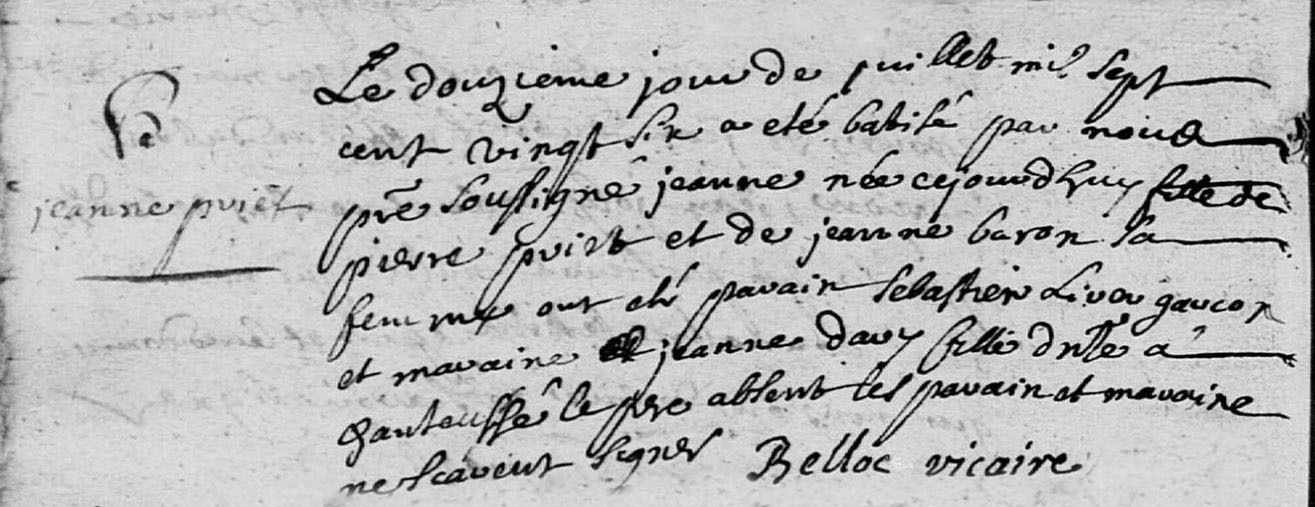 Le douzieme jour de juillet mil sept
cent vingt six a eté batisé par nous
jeanne priet
prê soussigné jeanne née cejourdhuy fille de
pierre priet et de jeanne baron sa
femme ont eté parain sebastien garcon
et maraine jeanne davy fille a
le pere absent les parain et maraine
ne scavent signer Belloc vicaire